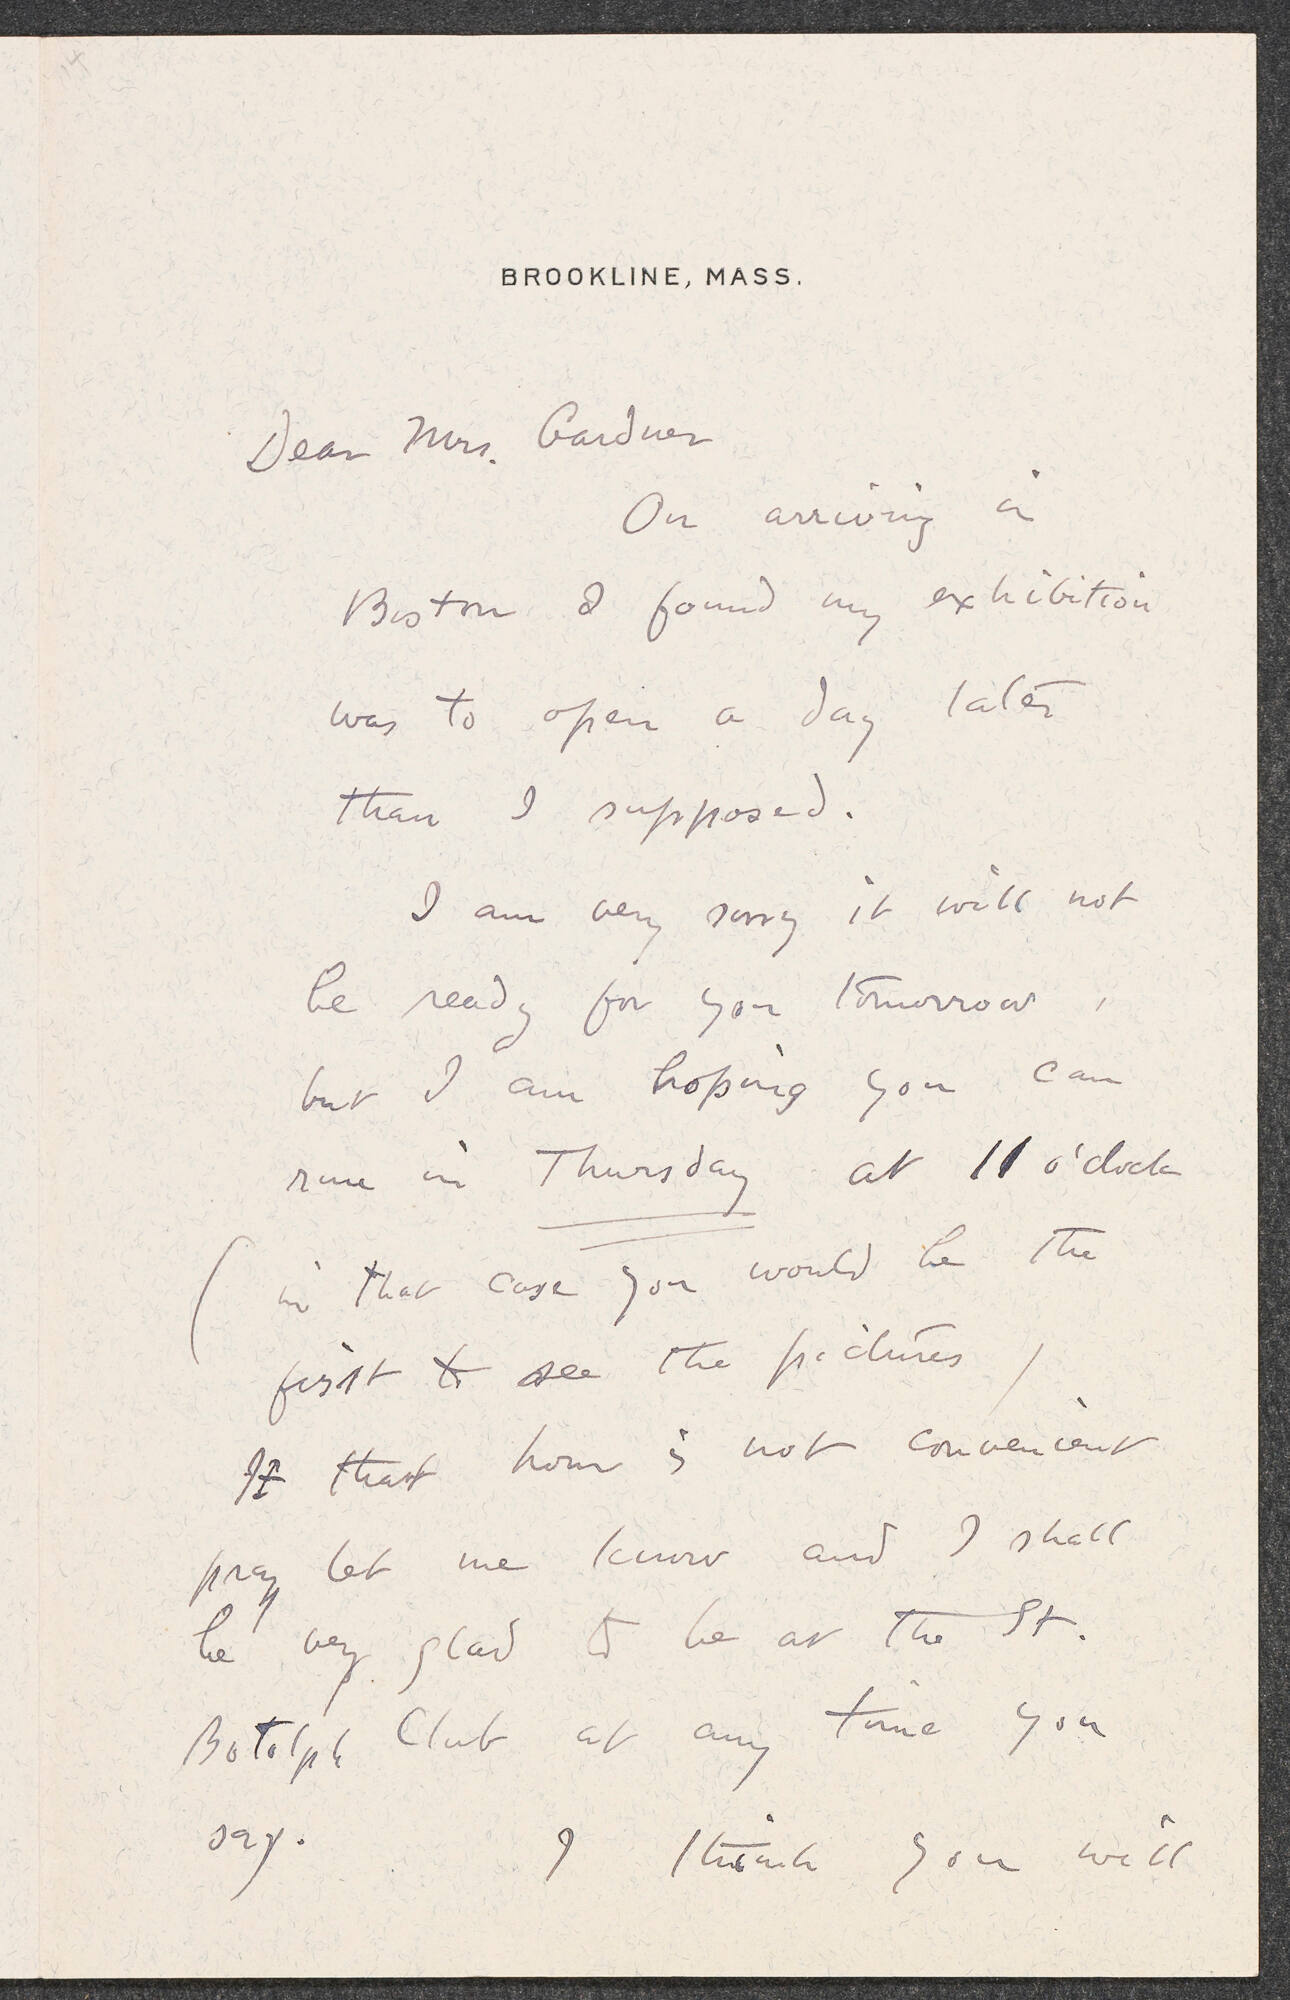 BROOKLINE, MASS.
Dear Mrs. Gardner
On arriving in
Boston I found my exhibition
was to open a day later
than I supposed.
I am very sorry it will not
be ready for you tomorrow,
but I am hoping you can
run in Thursday at 11 o'clock
(in that case you would be the
first to see the pictures)
If that hour is not convenient
pray let me know and I shall
be very glad to be at the St.
Botolph Club at any time you
say. I think you will